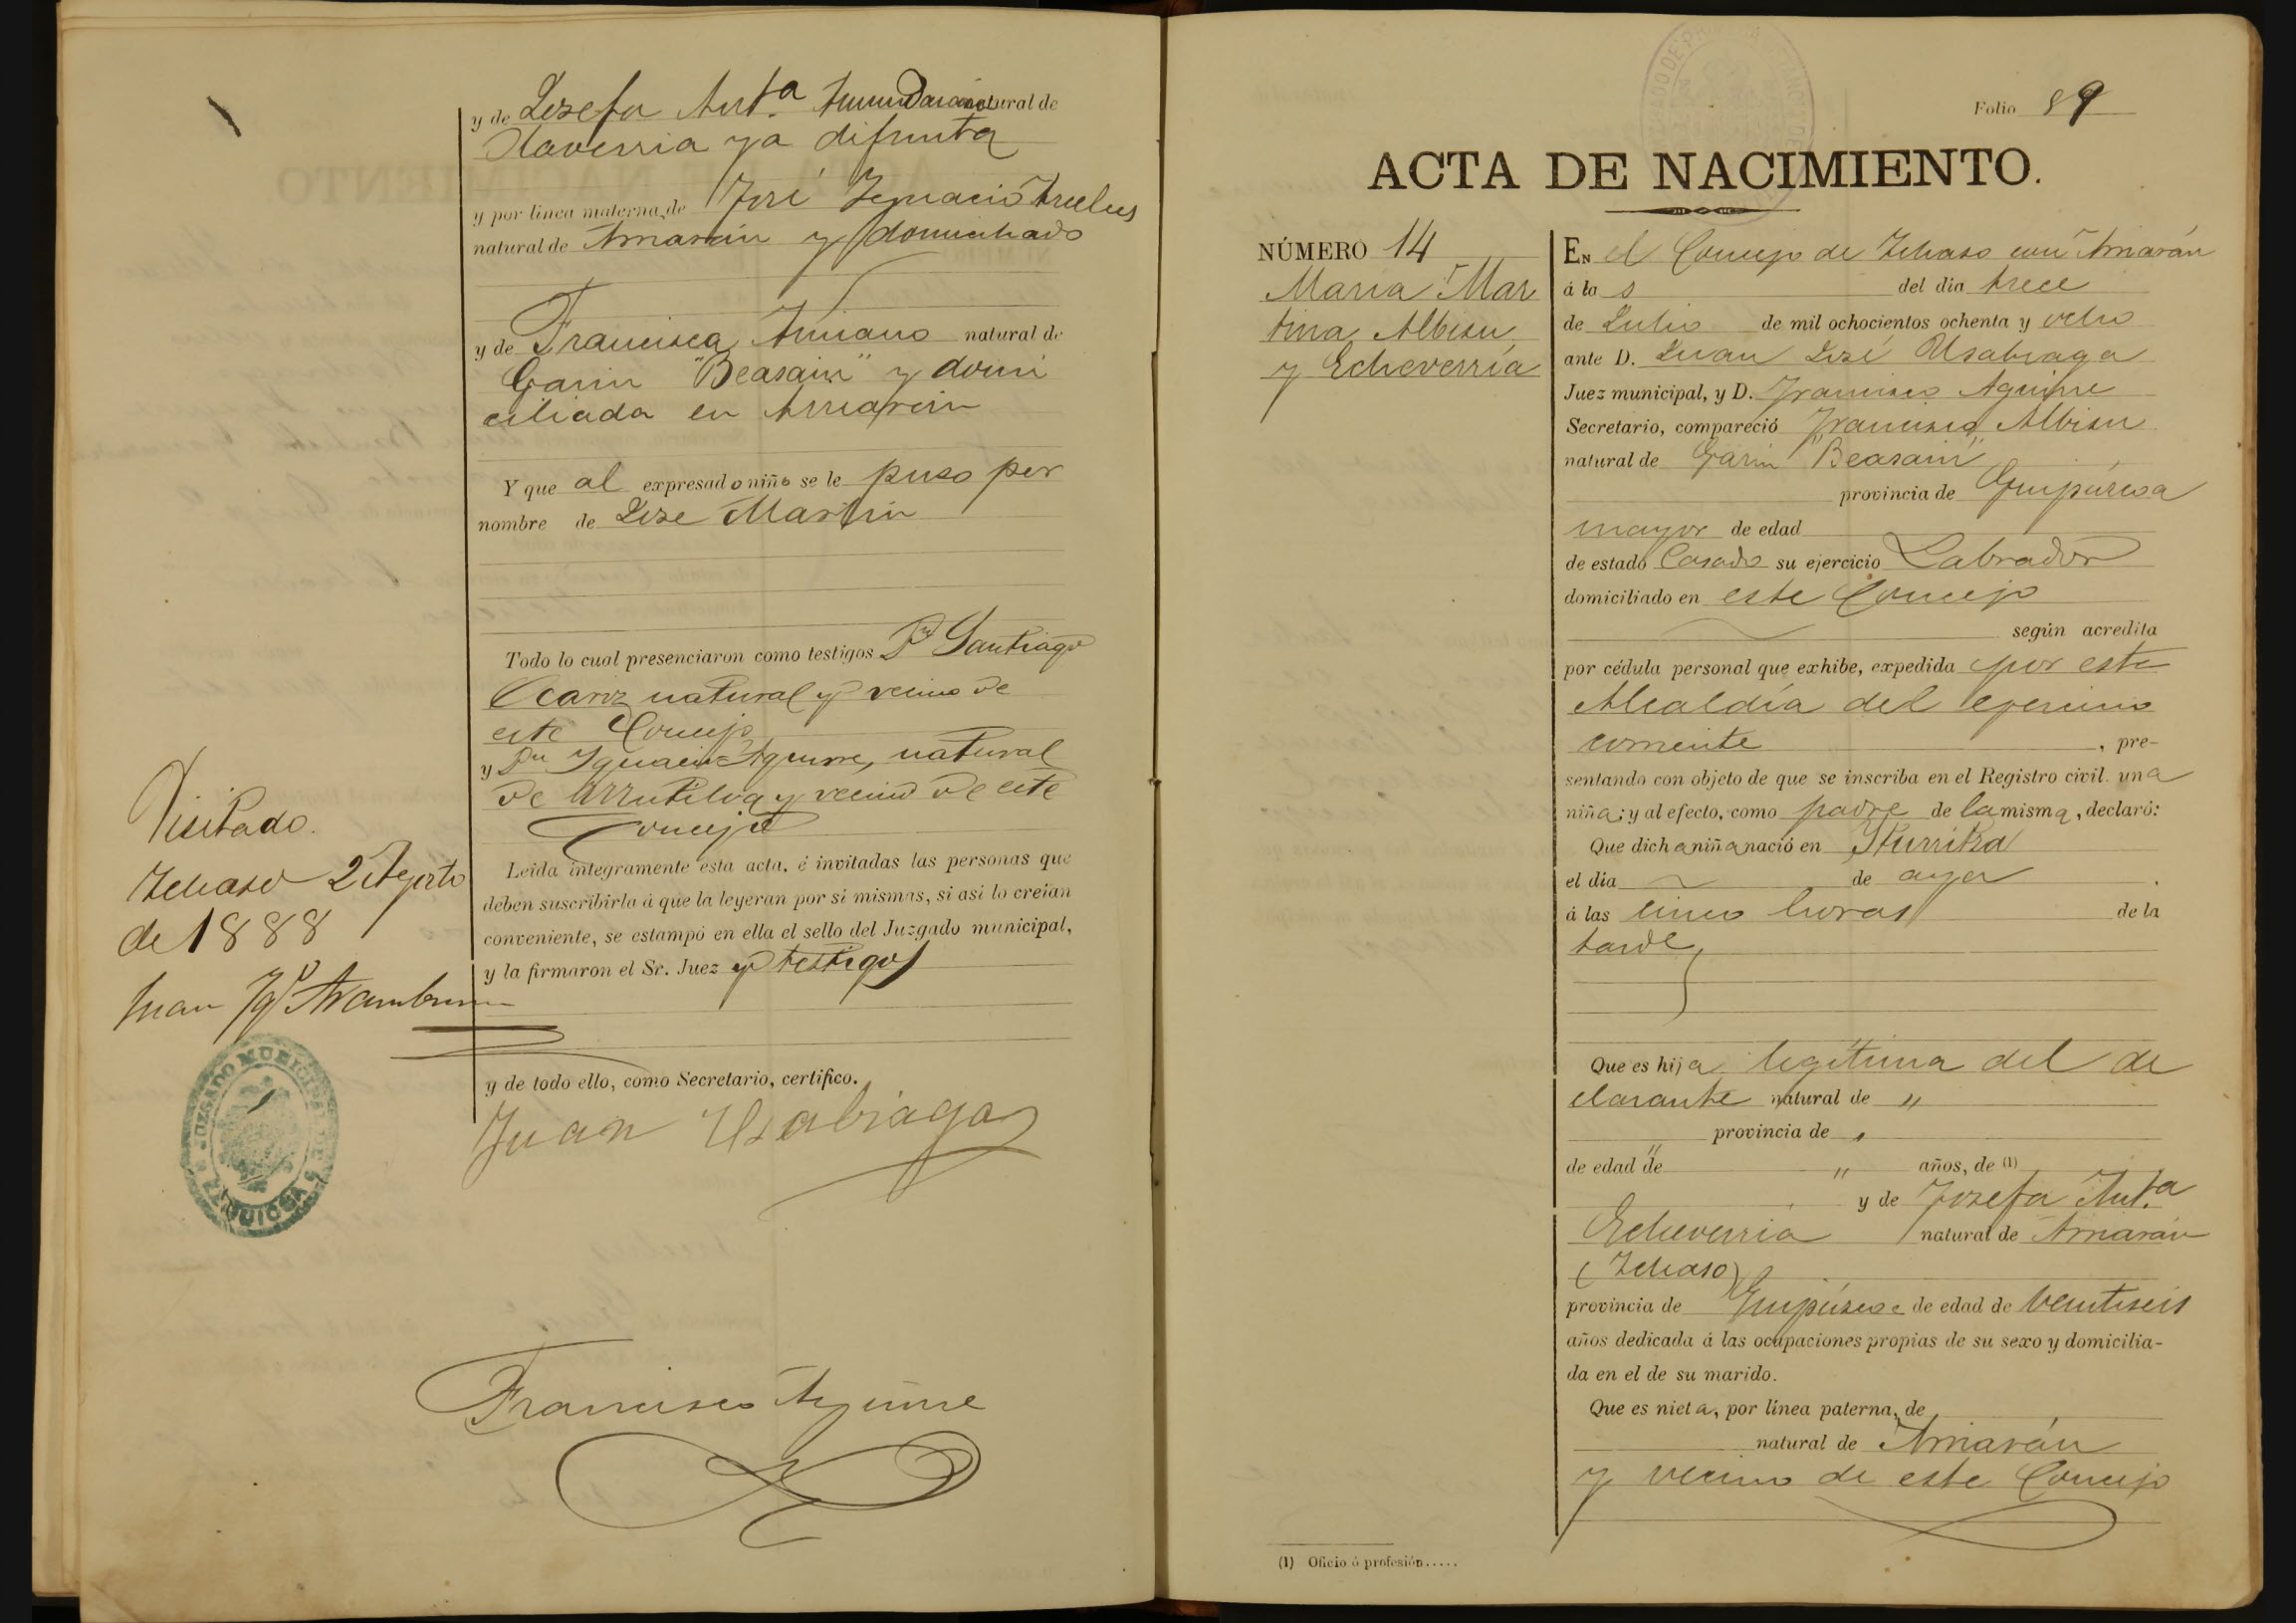 y de Josefa Ant.ª natural de
Olaverria ya difunta
y por línea materna, de José Ygnacio
natural de Arriarán y domiciliado
y de Francisca natural de
Garin "Beasain" y domi
ciliada en Arriarán
Y que al expresado niño se le puso por
nombre de José Martin
Todo lo cual presenciaron como testigos Dn Santiago
Ocariz natural y vecino de
este Concejo
y Dn Ygnacio Aguirre, natural
de Arrutilva y vecino de este
Concejo
Leida integramente esta acta, é invitadas las personas que
deben suscribirla á que la leyeran por sí mismas, si así lo creían
conveniente, se estampó en ella el sello del Juzgado municipal,
y la firmaron el Sr. Juez y testigos
y de todo ello, como Secretario, certifico.
Juan Usabiaga
Francisco Aguirre
Visitado.
Ichaso 2 Agosto
de 1888
Juan Ygº Aramburu
JUZGADO MUNICIPAL DE
Folio 89
ACTA DE NACIMIENTO.
NÚMERO 14
Maria Mar
tina Albisu
y Echeverría
EN el Concejo de Ichaso con Arriarán
á las del dia trece
de Julio de mil ochocientos ochenta y ocho
ante D. Juan José Usabiaga
Juez municipal, y D. Francisco Aguirre
Secretario, compareció Francisco Albisu
natural de Garin "Beasain"
provincia de Guipúzcoa
mayor de edad
de estado Casado su ejercicio Labrador
domiciliado en este Concejo
según acredita
por cédula personal que exhibe, expedida por esta
Alcaldía del ejercicio
corriente, pre-
sentando con objeto de que se inscriba en el Registro civil una
niña; y al efecto, como padre de la misma, declaró:
Que dicha niña nació en Yturritza
el día de ayer.
á las cinco horas de la
tarde
Que es hija legítima del de
clarante natural de "
provincia de "
de edad de " " años, de (1)
y de Josefa Ant.ª
Echeverria natural de Arriarán
(Ichaso)
provincia de Guipúzcoa de edad de veintiseis
años dedicada á las ocupaciones propias de su sexo y domicilia-
da en el de su marido.
Que es nieta, por línea paterna, de
natural de Arriarán
y vecino de este Concejo
(1) Oficio ó profesión.....